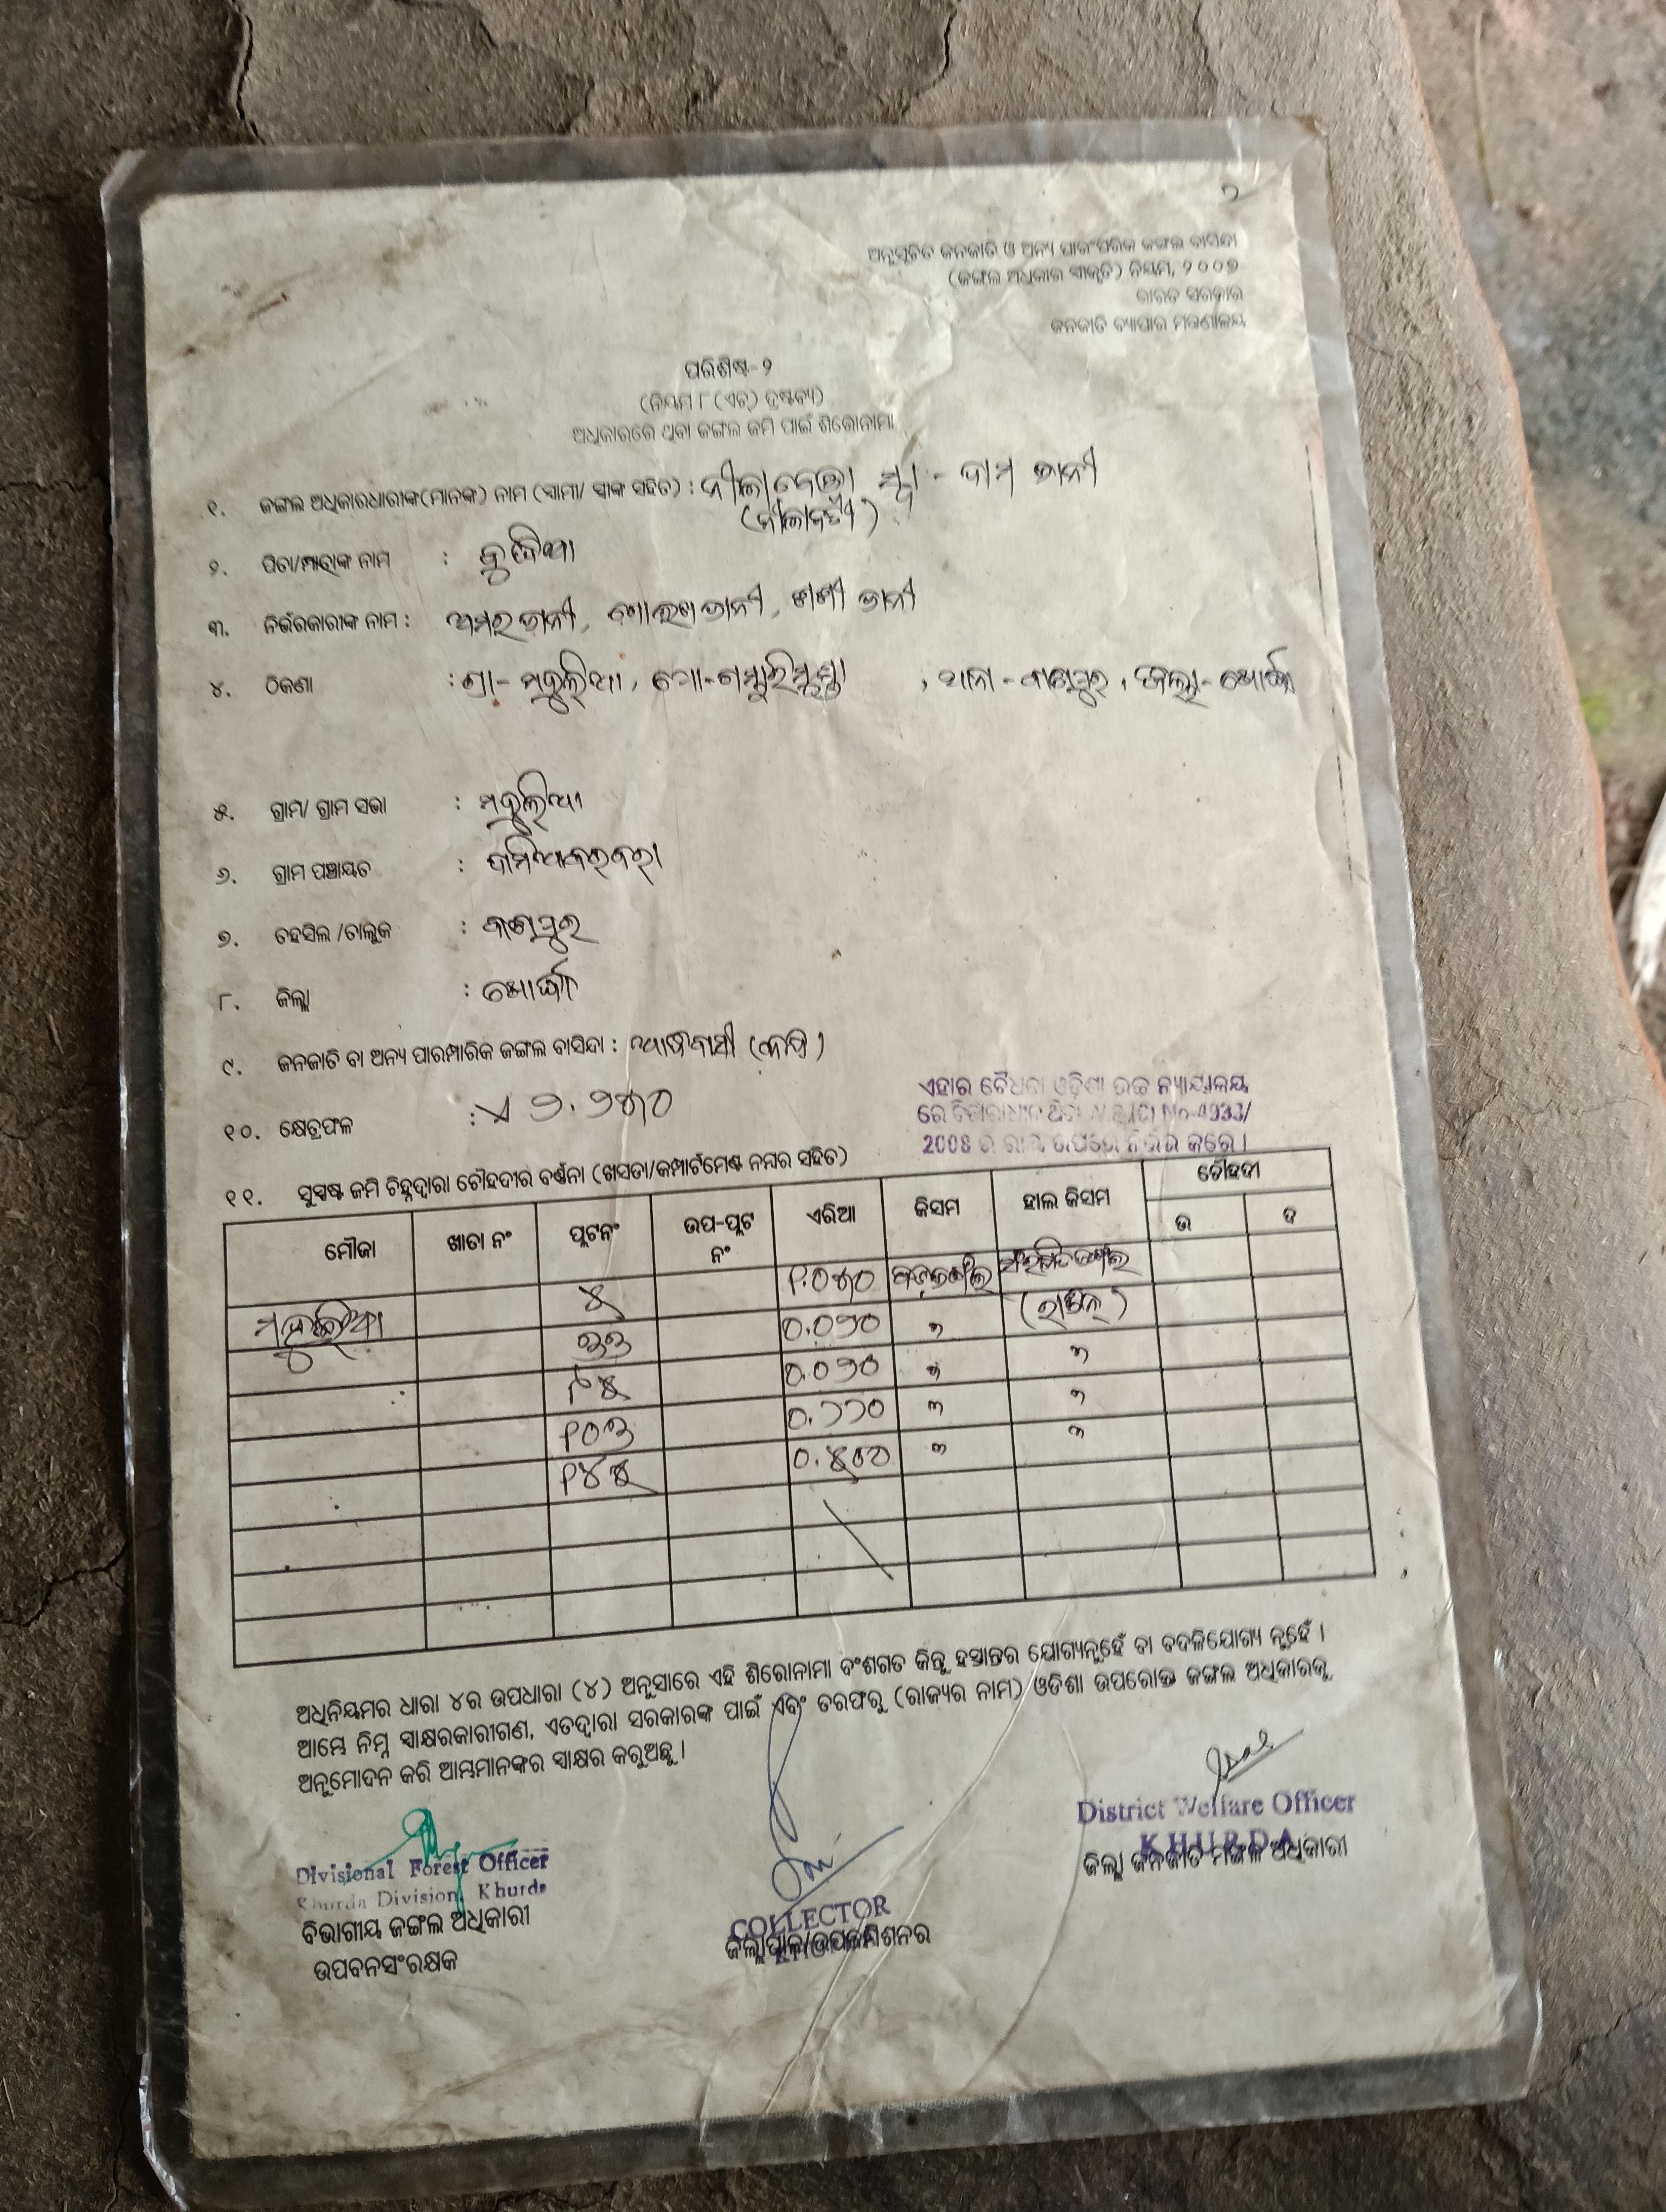 ୨
ଅନୁସୂଚିତ ଜନଜାତି ଓ ଅନ୍ୟ ପାରଂପରିକ ଜଙ୍ଗଲ ବାସିନ୍ଦା
(ଜଙ୍ଗଲ ଅଧିକାର ସ୍ୱୀକୃତି) ନିୟମ, ୨୦୦୭
ଭାରତ ସରକାର
ଜନଜାତି ବ୍ୟାପାର ମନ୍ତ୍ରଣାଳୟ
ପରିଶିଷ୍ଟ-୨
(ନିୟମ ୮ (ଏଚ୍) ଦ୍ରଷ୍ଟବ୍ୟ)
ଅଧିକାରରେ ଥିବା ଜଙ୍ଗଲ ଜମି ପାଇଁ ଶିରୋନାମା
୧. ଜଙ୍ଗଲ ଅଧିକାରଧାରୀଙ୍କ(ମାନଙ୍କ) ନାମ (ସ୍ୱାମୀ/ ସ୍ତ୍ରୀଙ୍କ ସହିତ) : ଦାମ ଜାନୀ
୨. ପିତା/ମାତାଙ୍କ ନାମ :
୩. ନିର୍ଭରକାରୀଙ୍କ ନାମ : ଅମର ଜାନୀ, ଜାନୀ, ଶଶୀ ଜାନୀ
୪. ଠିକଣା : ଗ୍ରା- ପୋ- , ଥାନା - ବାଣପୁର, ଜିଲ୍ଲା- ଖୋର୍ଦ୍ଧା
୫. ଗ୍ରାମ/ ଗ୍ରାମ ସଭା :
୬. ଗ୍ରାମ ପଞ୍ଚାୟତ :
୭. ତହସିଲ /ତାଲୁକ : ବାଣପୁର
୮. ଜିଲ୍ଲା : ଖୋର୍ଦ୍ଧା
୯. ଜନଜାତି ବା ଅନ୍ୟ ପାରମ୍ପାରିକ ଜଙ୍ଗଲ ବାସିନ୍ଦା : ଆଦିବାସୀ
୧୦. କ୍ଷେତ୍ରଫଳ : ୨.୨୫୦
ଏହାର ବୈଧତା ଓଡ଼ିଶା ଉଚ୍ଚ ନ୍ୟାୟାଳୟ
ରେ ବିଚାରାଧୀନ ଥିବା No-4933/
2008 ର ରାୟ ଉପରେ ନିର୍ଭର କରେ ।
୧୧. ସୁସ୍ପଷ୍ଟ ଜମି ଚିହ୍ନଦ୍ୱାରା ଚୌହଦୀର ବର୍ଣ୍ଣନା (ଖସଡା/କମ୍ପାର୍ଟମେଣ୍ଟ ନମ୍ବର ସହିତ)
ମୌଜା ଖାତା ନଂ ପ୍ଲଟନଂ ଉପ-ପ୍ଲଟ ନଂ ଏରିଆ କିସମ ହାଲ କିସମ ଚୌହଦୀ
ଉ ଦ
୫ ୧.୦୫୦
୩୩ ୦.୦୨୦ "
୧୫ ୦.୦୨୦ " "
୧୦୩ " "
୧୪୫ " "
ଅଧିନିୟମର ଧାରା ୪ର ଉପଧାରା (୪) ଅନୁସାରେ ଏହି ଶିରୋନାମା ବଂଶଗତ କିନ୍ତୁ ହସ୍ତାନ୍ତର ଯୋଗ୍ୟନୁହେଁ ବା ବଦଳିଯୋଗ୍ୟ ନୁହେଁ ।
ଆମ୍ଭେ ନିମ୍ନ ସ୍ୱାକ୍ଷରକାରୀଗଣ, ଏତଦ୍ୱାରା ସରକାରଙ୍କ ପାଇଁ ଏବଂ ତରଫରୁ (ରାଜ୍ୟର ନାମ) ଓଡିଶା ଉପରୋକ୍ତ ଜଙ୍ଗଲ ଅଧିକାରକୁ
ଅନୁମୋଦନ କରି ଆମ୍ଭମାନଙ୍କର ସ୍ୱାକ୍ଷର କରୁଅଛୁ ।
Divisional Forest Officer
Khurda Division, Khurda
ବିଭାଗୀୟ ଜଙ୍ଗଲ ଅଧିକାରୀ
ଉପବନସଂରକ୍ଷକ
COLLECTOR
ଜିଲ୍ଲାପାଳ/ଉପକମିଶନର
District Welfare Officer
KHURDA
ଜିଲ୍ଲା ଜନଜାତି ମଙ୍ଗଳ ଅଧିକାରୀ